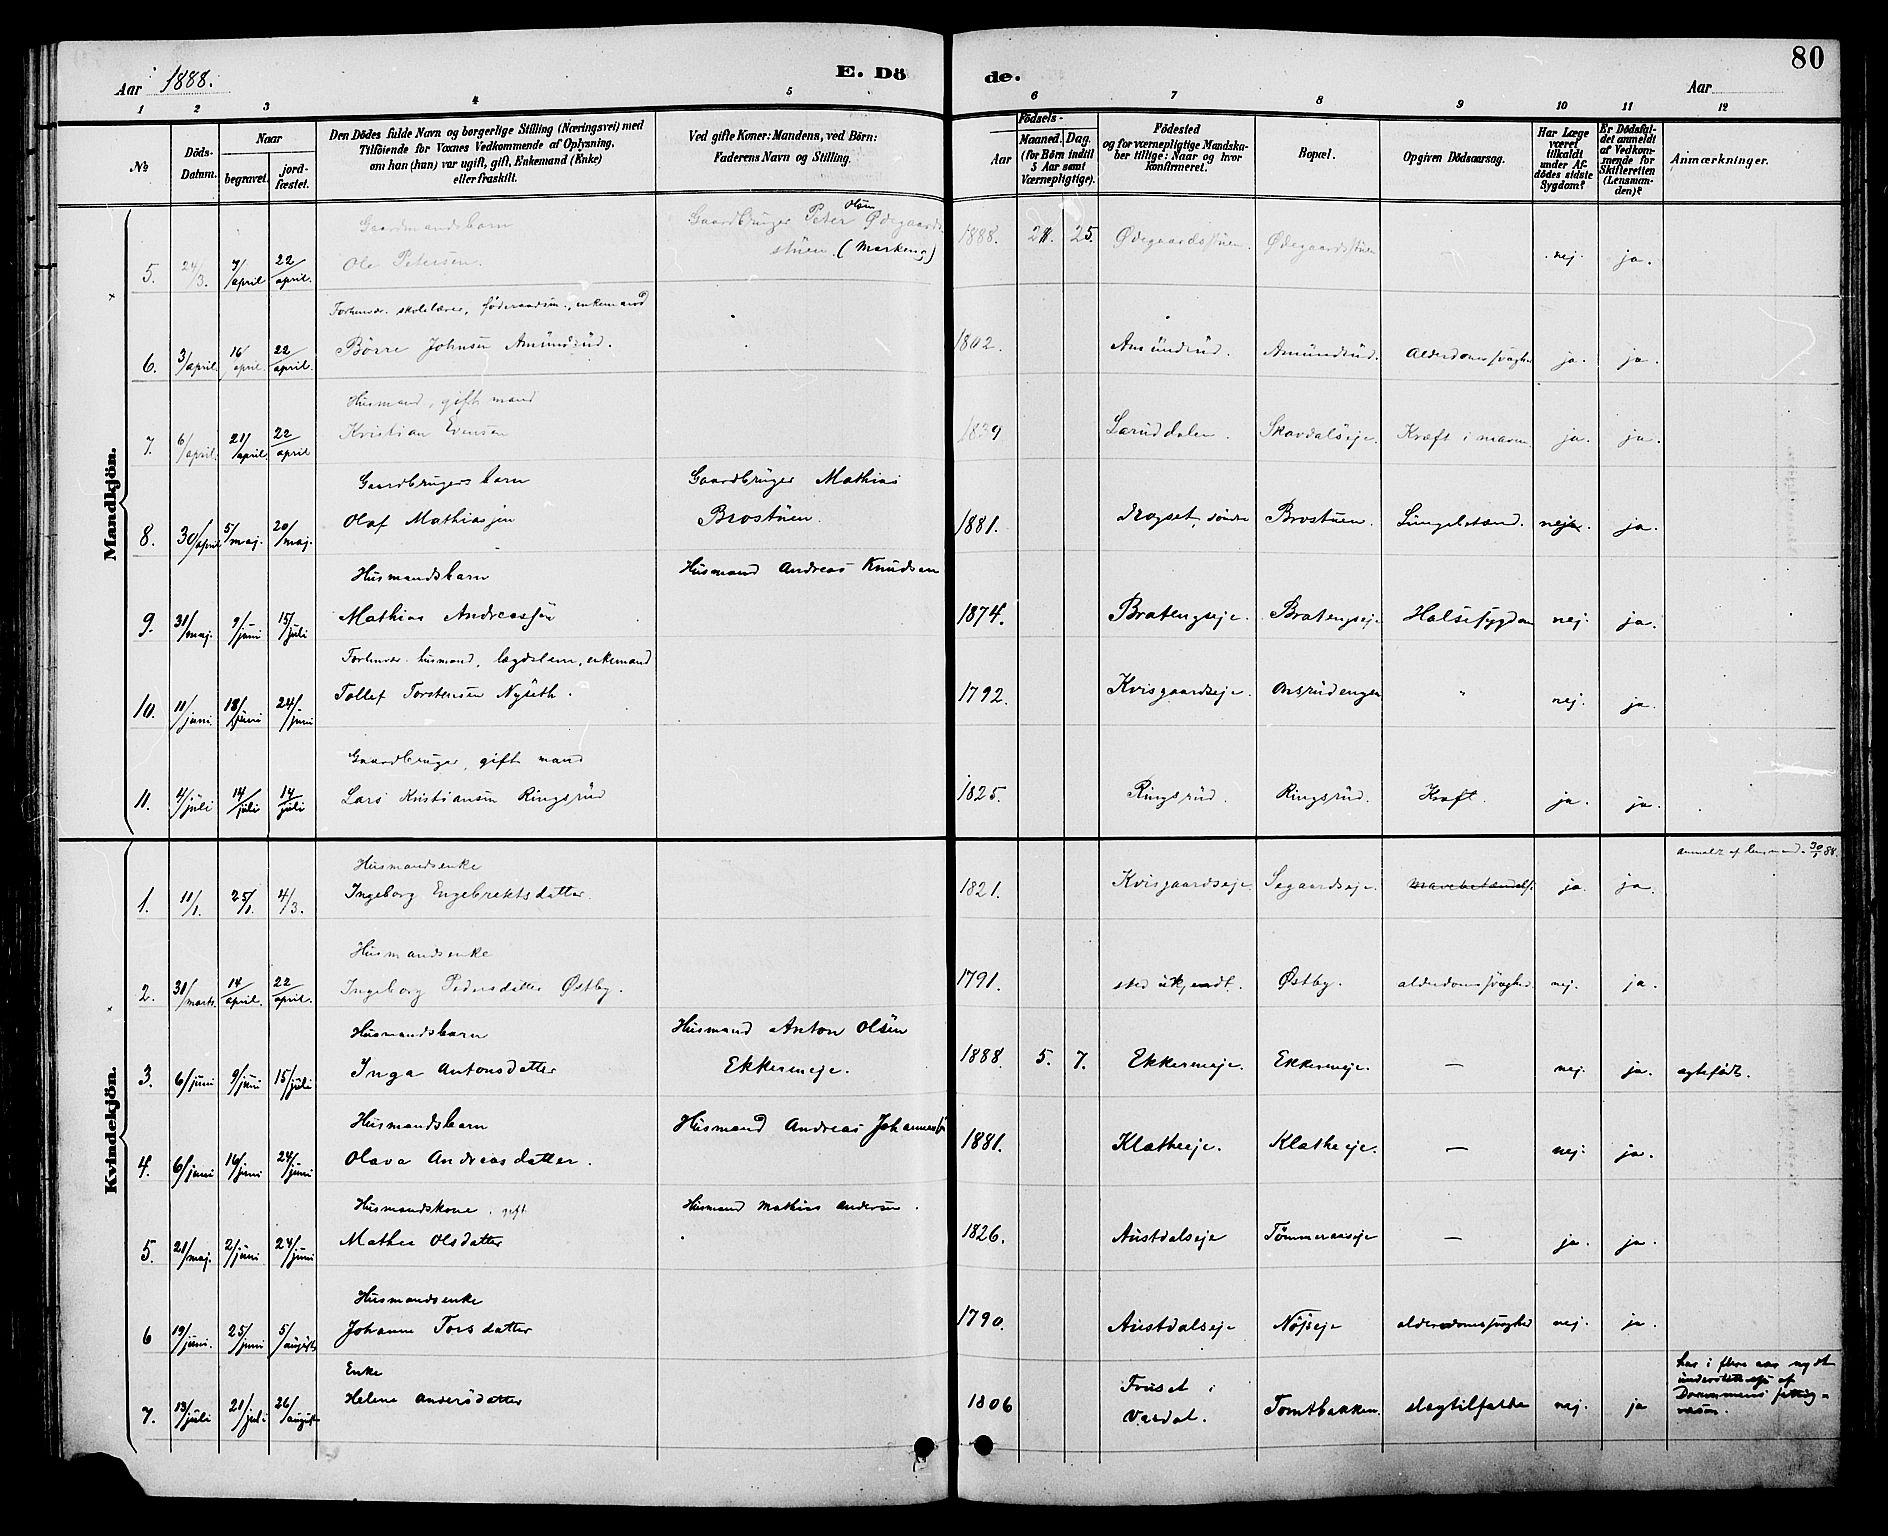 80
Aar 1888.
E. Dö
de.
Aar
1 2 3 4 5 6 7 8 9 10 11 12
No.
Döds-Datum.
Naar
begravet.
jord-fæstet.
Den Dödes fulde Navn og borgerlige Stilling (Næringsvei) med
Tilföiende for Voxnes Vedkommende af Oplysning,
om han (hun) var ugift, gift, Enkemand (Enke)
eller fraskilt.
Ved gifte Koner: Mandens, ved Börn:
Faderens Navn og Stilling.
Födsels-
Aar
Maaned. Dag.
(for Børn indtil
5 Aar samt
Værnepligtige).
Födested
og for værnepligtige Mandska-
ber tillige: Naar og hvor
konfirmeret.
Bopæl.
Opgiven Dödsaarsag.
Har Læge
været
tilkaldt
under Af-
dödes sidste
Sygdom?
Er Dödsfal-
det anmeldt
af Vedkom-
mende for
Skifteretten
(Lensman-
den)?
Anmærkninger.
Mandkjön.
Gaardmandsbarn Gaardbruger Peter Olsen Ødegaards-
5. 24/3. 7/april 22/april. Ole Petersen. stuen (Marken) 1888. 2. 25. Ødegaardsstuen. Ødegaardsstuen nej. ja.
Forhenvær. skolelærer, föderaadsm., enkemand
6. 3/april. 16/april. 22/april. Börre Johnsen Amundrud. 1802. Amundrud. Amundrud. Alderdomssvaghed ja. ja.
Husmand, gift mand
7. 6/april. 21/april. 22/april Kristian Evensen 1839 Laruddalen. Skovdalseje. Kræft i maven ja. ja.
Gaardbrugers barn Gaardbruger Mathias
8. 30/april 5/maj. 20/maj. Olaf Mathiassen Brostuen. 1881. Drogset, söndre Brostuen. Lungebetænd. nej. ja.
Husmandsbarn Husmand Andreas Knudsen
9. 31/maj. 9/juni 15/juli Mathias Andreassen 1874. Bratengseje. Bratengseje Halsesygdom nej. ja.
Forhenvær. husmand, lægdslem, enkemand
10. 11/juni. 18/juni 24/juni Tollef Torstensen Nyseth. 1792. Kvisgaardseje. Onsrudengen " nej. ja.
Gaardbruger, gift mand
11. 4/juli 14/juli 14/juli Lars Kristiansen Ringsrud 1825. Ringsrud. Ringsrud. Kræft. ja. ja.
Kvindekjön.
Husmandsenke anmeldt af lensmand. 30/1 88.
1. 11/1. 25/1. 4/3. Ingeborg Engebrektsdatter. 1821. Kvisgaardseje. Segaardseje. mavebetændels. ja. ja.
Husmandsenke
2. 31/marts. 14/april. 22/april. Ingeborg Pedersdatter Østby. 1791. sted ukjendt. Østby. alderdomssvaghed nej. ja.
Husmandsbarn Husmand Anton Olsen
3. 6/juni 9/juni 15/juli Inga Antonsdatter Ekkerneje. 1888. 5. 7. Ekkerneje. Ekkerneje. — nej. ja. ægtefødt.
Husmandsbarn Husmand Andreas Johannes
4. 6/juni 16/juni 24/juni Olava Andreasdatter. 1881. Klatheeje. Klatheeje. — nej. ja.
Husmandskone, gift Husmand Mathias Andersen.
5. 21/maj. 2/juni 24/juni Mathea Olsdatter 1826. Austdalseje Tömmeraaseje — ja. ja.
Husmandsenke
6 19/juni. 25/juni 5/august Johanne Torsdatter 1790. Austdalseje Nöjseje alderdomssvaghed nej. ja.
Enke
7. 13/juli 21/juli 26/august Helene Andersdatter 1806 Fruset i Vardal. Tomtbakken. slagtilfælde nej. ja har i flere aar nydt
understöttelse af
Drammens fattig-
væsen.